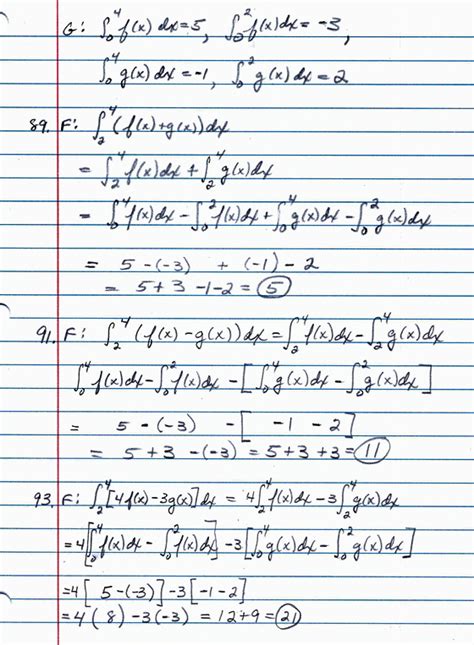 G: ∫₀⁴ f(x) dx = 5, ∫₀² f(x)dx = -3,
∫₀⁴ g(x) dx = -1, ∫₀² g(x) dx = 2
89. F: ∫₂⁴ (f(x)+g(x))dx
= ∫₂⁴ f(x)dx + ∫₂⁴ g(x)dx
= ∫₀⁴ f(x)dx - ∫₀² f(x)dx + ∫₀⁴ g(x)dx - ∫₀² g(x)dx
= 5 -(-3) + (-1) - 2
= 5 + 3 -1 -2 = 5
91. F: ∫₂⁴ (f(x) - g(x))dx = ∫₂⁴ f(x)dx - ∫₂⁴ g(x)dx
∫₀⁴ f(x)dx - ∫₀² f(x)dx - [∫₀⁴ g(x)dx - ∫₀² g(x)dx]
= 5 - (-3) - [ -1 - 2]
= 5 + 3 - (-3) = 5 + 3 + 3 = 11
93. F: ∫₂⁴ [4f(x) - 3g(x)]dx = 4∫₂⁴ f(x)dx - 3∫₂⁴ g(x)dx
= 4[∫₀⁴ f(x)dx - ∫₀² f(x)dx] - 3[∫₀⁴ g(x)dx - ∫₀² g(x)dx]
= 4[ 5 -(-3)] - 3[-1 - 2]
= 4( 8) - 3(-3) = 12 + 9 = 21